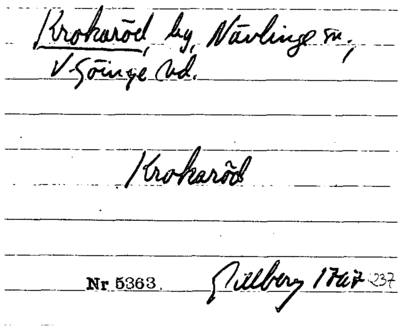 Krokaröd, by, Nävlinge sn.,
V Göinge hd.
Krokaröd
Nr 5363. Gillberg 1767 237